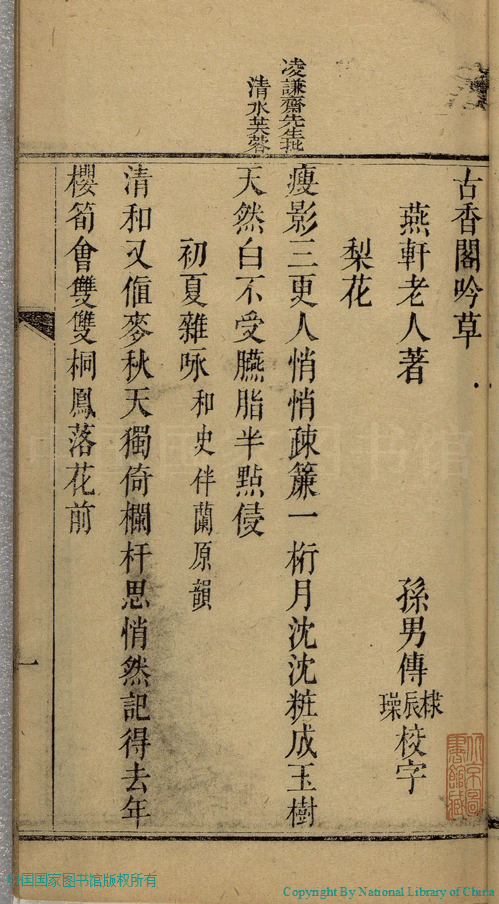 凌謙齋先生批
清水芙蓉
古香閣吟草
燕軒老人著 孫男傳棣辰璪校字
梨花
瘦影三更人悄悄疎簾一桁月沈沈粧成玉樹
天然白不受臙脂半點侵
初夏雜咏 和史伴蘭原韻
清和又值麥秋天獨倚欄杆思悄然記得去年
櫻筍會雙雙桐鳳落花前
一
中国国家图书馆
中国国家图书馆版权所有
Copyright By National Library of China